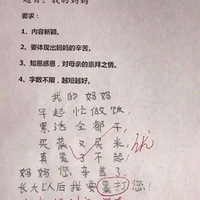 要求：
1、内容新颖。
2、要体现出妈妈的辛苦。
3、知恩感恩，对母亲的崇拜之情。
4、字数不限，越短越好。
我的妈妈
早起忙做饭，
累活全都干，
买菜又买米，
真是了不起！
妈妈您辛苦了，
长大以后我要暴打您！